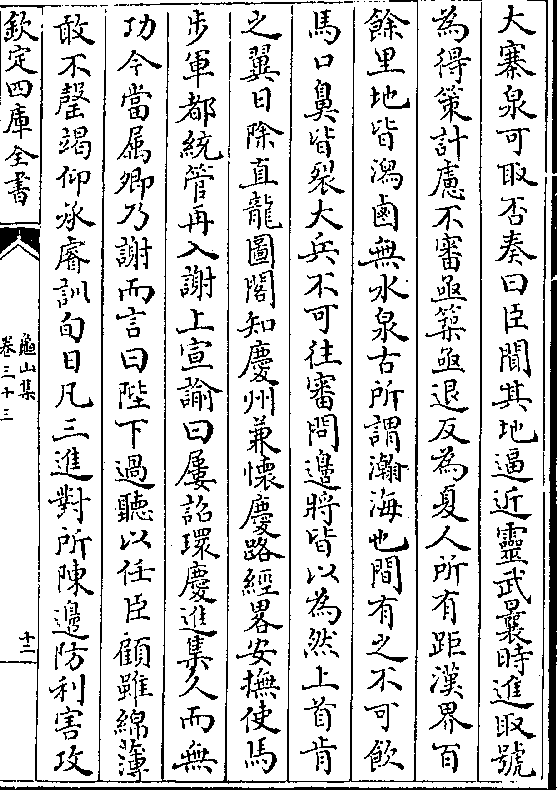 大寨泉可取否奏曰臣聞其地逼近靈武曩時進取號
為得策計慮不審亟築亟退反為夏人所有距漢界百
餘里地皆瀉鹵無水泉古所謂瀚海也間有之不可飲
馬口鼻皆裂大兵不可往審問邊將皆以為然上首肯
之翼日除直龍圖閣知慶州兼懐慶路經畧安撫使馬
步軍都統管再入謝上宣諭曰屢詔環慶進集久而無
功今當属卿乃謝而言曰陛下過聽以任臣顧雖綿薄
敢不罄竭仰承睿訓旬日凡三進對所陳邊防利害攻
欽定四庫全書
龜山集
卷三十三
十二